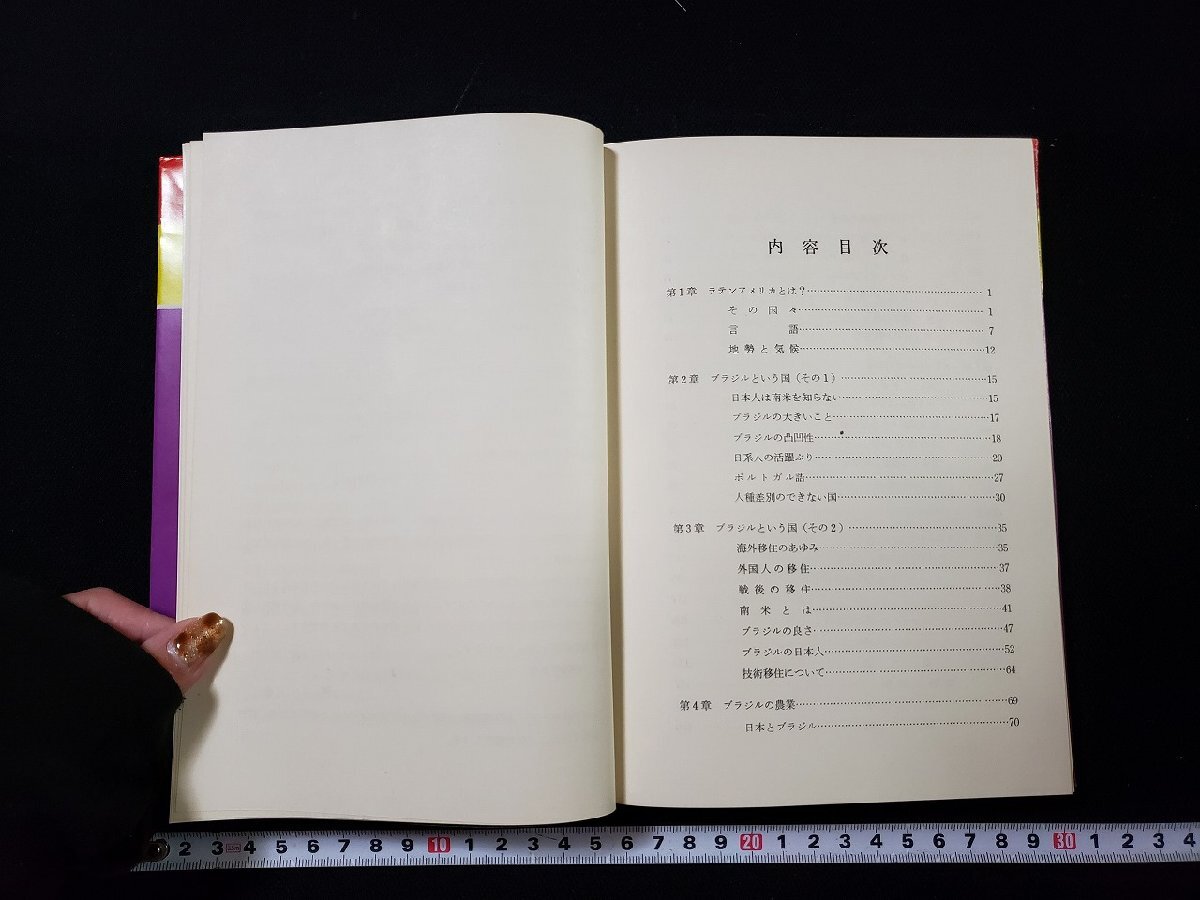 内容目次
第1章 ラテンアメリカとは?……1
その国々……1
言語……7
地勢と気候……12
第2章 ブラジルという国(その1)……15
日本人は南米を知らない……15
ブラジルの大きいこと……17
ブラジルの凸凹性……18
日系人の活躍ぶり……20
ポルトガル語……27
人種差別のできない国……30
第3章 ブラジルという国(その2)……35
海外移住のあゆみ……35
外国人の移住……37
戦後の移住……38
南米とは……41
ブラジルの良さ……47
ブラジルの日本人……52
技術移住について……64
第4章 ブラジルの農業……69
日本とブラジル……70
2 3 4 5 6 7 8 9 10 1 2 3 4 5 6 7 8 9 20 1 2 3 4 5 6 7 8 9 30 1 2 3 4